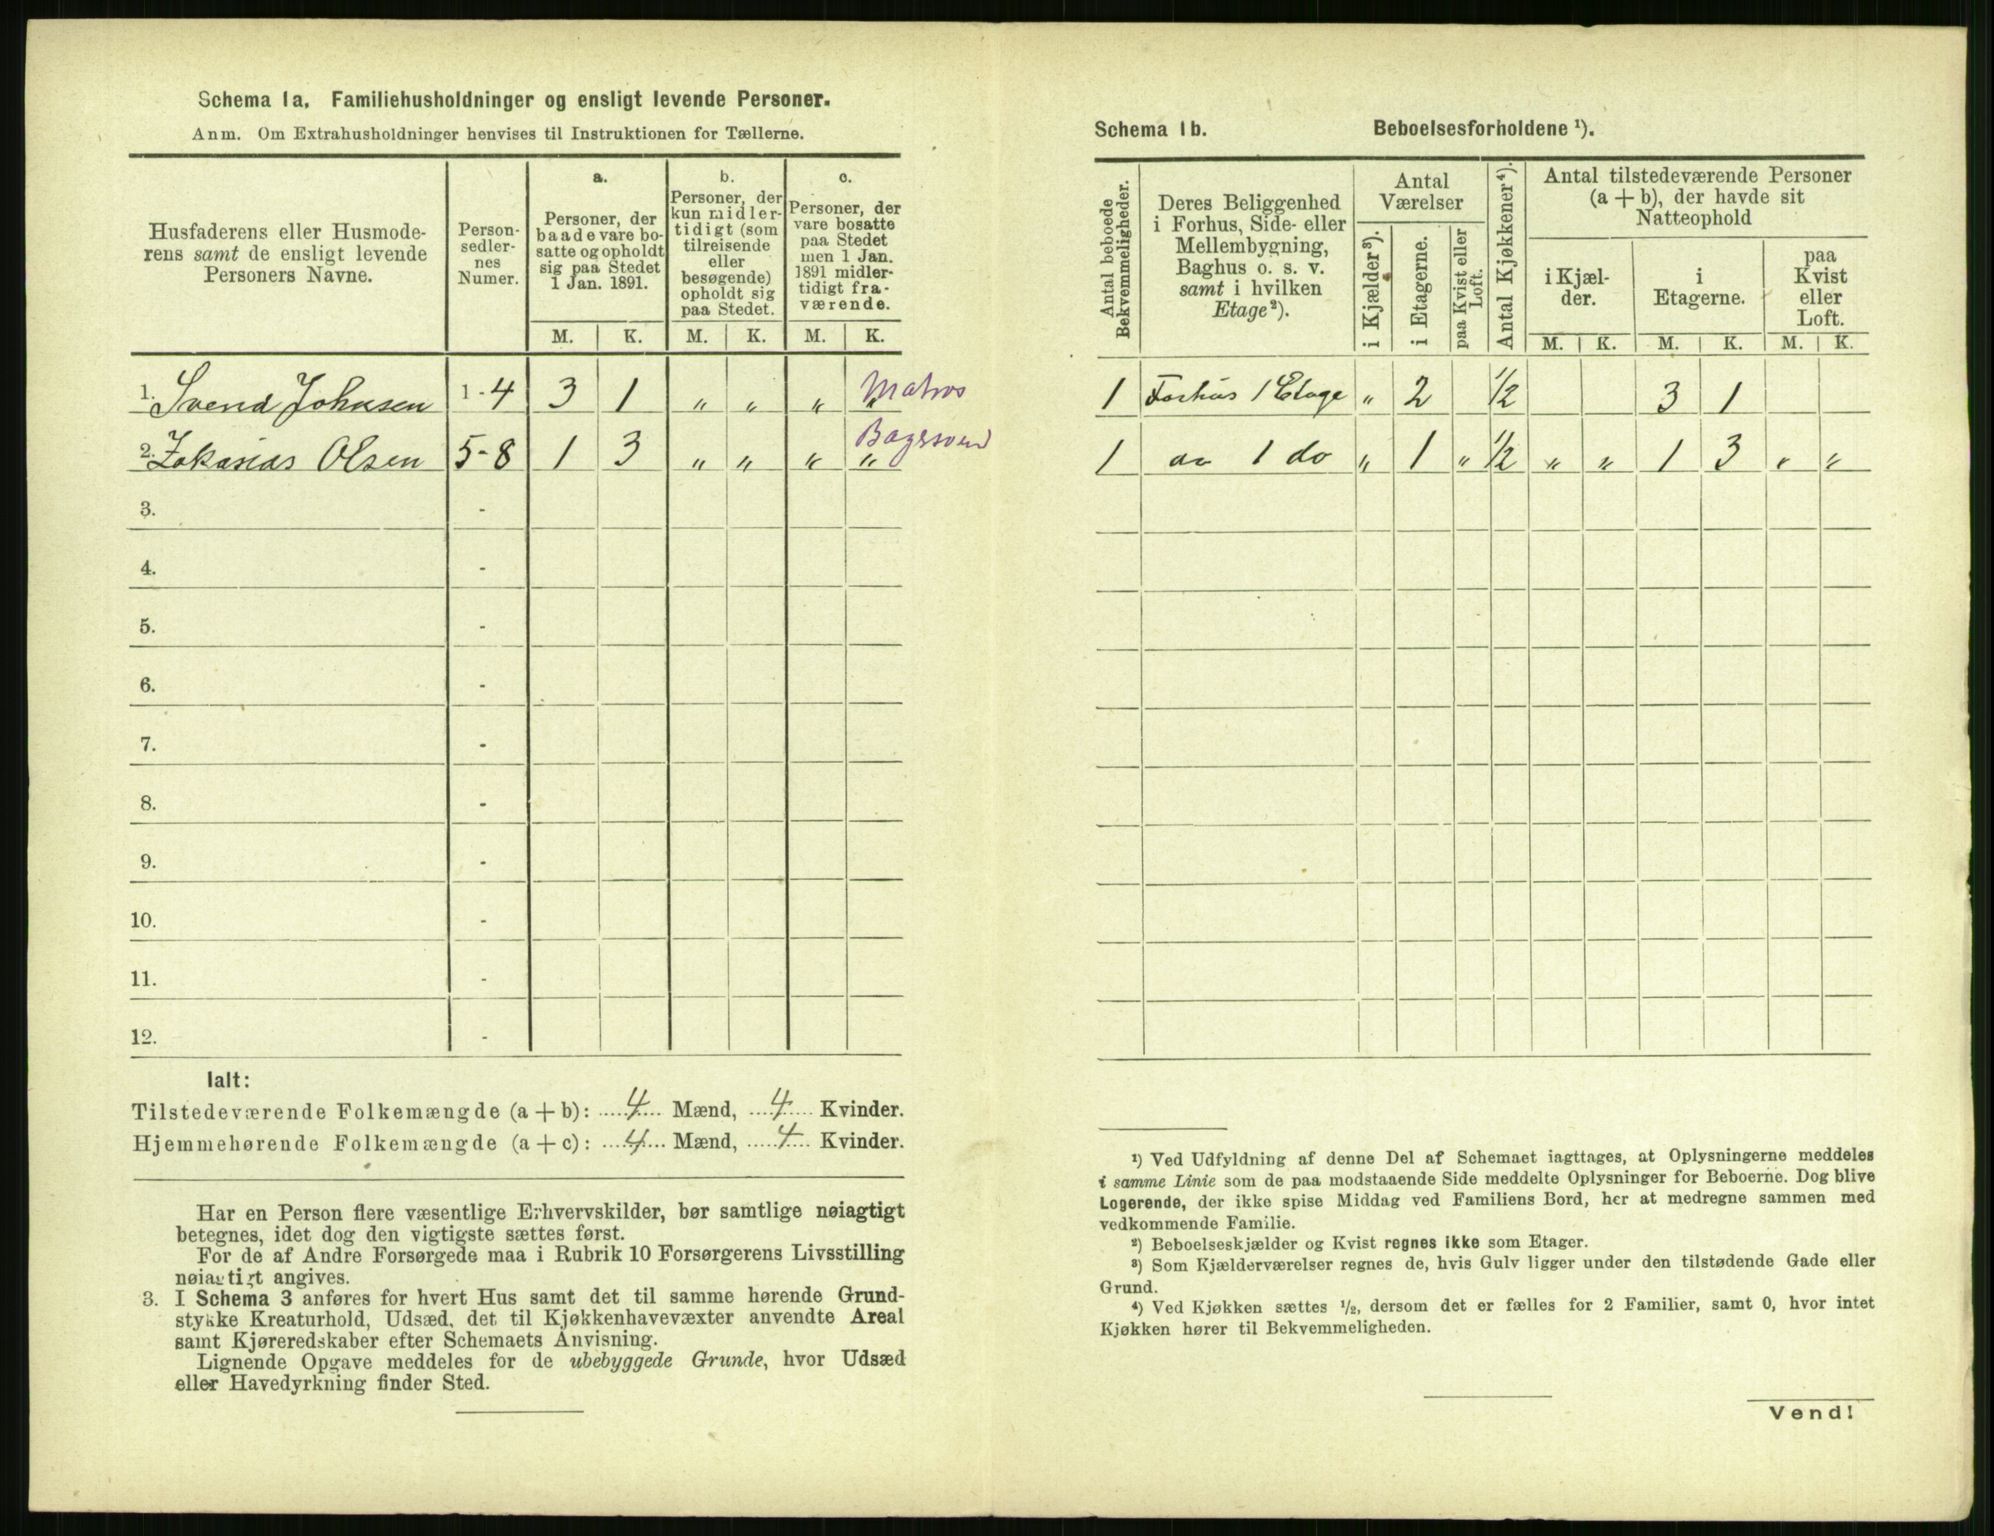 Schema 1a. Familiehusholdninger og ensligt levende Personer.
Anm. Om Extrahusholdninger henvises til Instruktionen for Tællerne.
Husfaderens eller Husmode-
rens samt de ensligt levende
Personers Navne.
Person-
sedler-
nes
Numer.
a.
Personer, der
baade vare bo-
satte og opholdt
sig paa Stedet
1 Jan. 1891.
b.
Personer, der
kun midler-
tidigt (som
tilreisende
eller
besøgende)
opholdt sig
paa Stedet.
c.
Personer, der
vare bosatte
paa Stedet
men 1 Jan.
1891 midler-
tidigt fra-
værende.
M. K. M. K. M. K.
1. Svend Johnsen 1-4 3 1 " " " " Matros
2. Zakarias Olsen 5-8 1 3 " " " " Bagersvend
3. -
4. -
5. -
6. -
7. -
8. -
9. -
10. -
11. -
12. -
Ialt:
Tilstedeværende Folkemængde (a + b): 4 Mænd, 4 Kvinder.
Hjemmehørende Folkemængde (a + c): 4 Mænd, 4 Kvinder.
Har en Person flere væsentlige Erhvervskilder, bør samtlige nøiagtigt
betegnes, idet dog den vigtigste sættes først.
For de af Andre Forsørgede maa i Rubrik 10 Forsørgerens Livsstilling
nøiagtigt angives.
3. I Schema 3 anføres for hvert Hus samt det til samme hørende Grund-
stykke Kreaturhold, Udsæd, det til Kjøkkenhavevæxter anvendte Areal
samt Kjøreredskaber efter Schemaets Anvisning.
Lignende Opgave meddeles for de ubebyggede Grunde, hvor Udsæd
eller Havedyrkning finder Sted.
Schema 1b. Beboelsesforholdene ¹).
Antal beboede
Bekvemmeligheder.
Deres Beliggenhed
i Forhus, Side- eller
Mellembygning,
Baghus o. s. v.
samt i hvilken
Etage²).
Antal
Værelser
i Kjælder³).
i Etagerne.
paa Kvist eller
Loft.
Antal Kjøkkener⁴).
Antal tilstedeværende Personer
(a + b), der havde sit
Natteophold
i Kjæl-
der.
i
Etagerne.
paa
Kvist
eller
Loft.
M. K. M. K. M. K.
1 Forhus 1 Etage " 2 1/2 3 1
1 do 1 do " 1 " 1/2 " " 1 3 " "
¹) Ved Udfyldning af denne Del af Schemaet iagttages, at Oplysningerne meddeles
i samme Linie som de paa modstaaende Side meddelte Oplysninger for Beboerne. Dog blive
Logerende, der ikke spise Middag ved Familiens Bord, her at medregne sammen med
vedkommende Familie.
²) Beboelseskjælder og Kvist regnes ikke som Etager.
³) Som Kjælderværelser regnes de, hvis Gulv ligger under den tilstødende Gade eller
Grund.
⁴) Ved Kjøkken sættes ¹/₂, dersom det er fælles for 2 Familier, samt 0, hvor intet
Kjøkken hører til Bekvemmeligheden.
Vend!